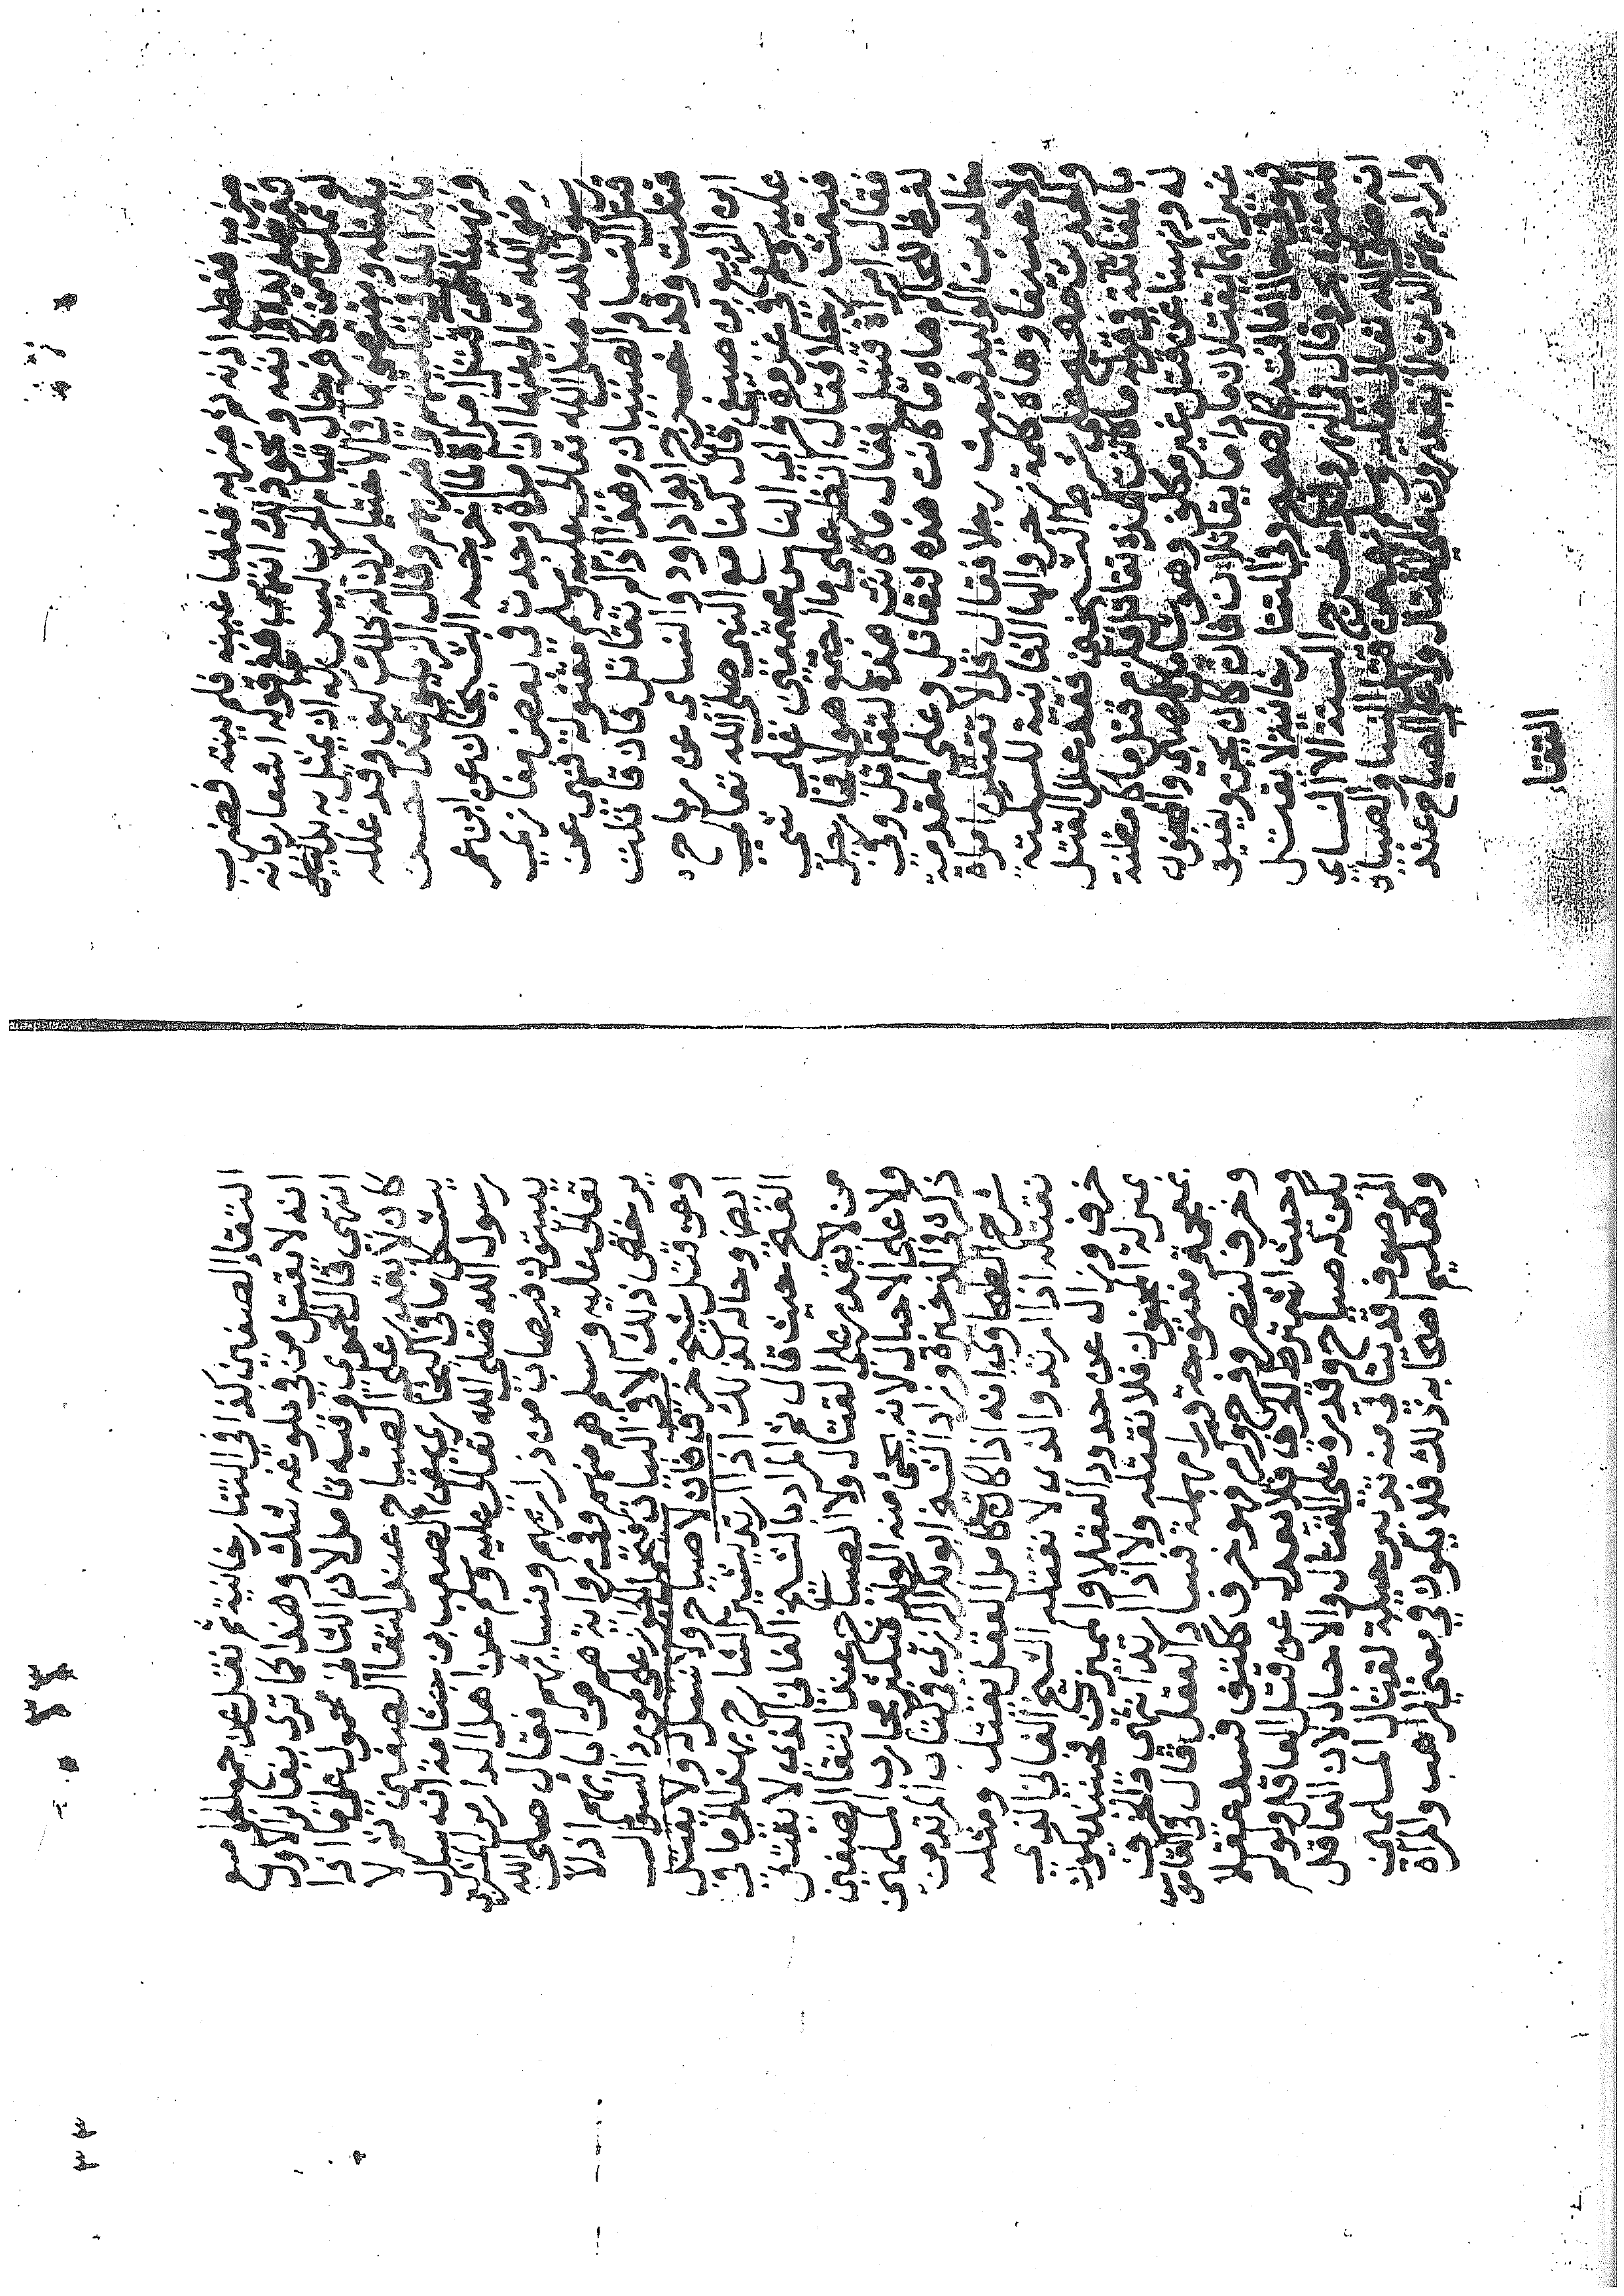 ضرب فقطع اذنه ثم ضربه ففقا عينيه فلم ينته فضرب
فقطع يده وانفه ونحو ذلك انتهى فقوله اشعار بانه
لو تمكن من كافر حال قيام الحرب ليس له ان يمثل به بل يقتله
ويقتضي ما في الاختيار ان له ذلك كيف وقد علله
وقال الزيلعي هذا حسن
ونهينا عن قتل امراة لما اخرجه الشيخان عن ابن عمر
رضي الله تعالى عنهما ان امراة وجدت في بعض مغازي
رسول الله صلى الله تعالى عليه وسلم مقتولة فنهى عن
قتل النسا والصبيان وهذا اذا لم تقاتل فان قاتلت
قتلت وقد اخرج ابو داود والنساي عن رباح
ابن الربيع بن صيفي قال كنا مع النبي صلى الله تعالى
عليه وسلم في غزوة فراى الناس مجتمعين على شي
فبعث رجلا فقال انظر على ما اجتمع هولا فجا رجل
فقال امراة قتيل فقال ما كانت هذه لتقاتل وفي
لفظ للحاكم هاه ما كانت هذه لتقاتل وعلى المقدمة
خالد بن الوليد فبعث رجلا فقال قل لا تقتلن امراة
ولا عسيفا وهاه كلمة زجر والها الثانية للسكتة
والحديث صحيح على شرط الشيخين فقد علل القتل
بالمقاتلة في قوله ما كانت هذه تقاتل فلزم قتل ما كا مظنة
له ونهينا عن قتل غير مكلف وهو شامل للصبي والمجنون
غير انهما يقتلان ما داما يقاتلان فان كان يجن ويفيق
فهو في حال افاقته كالصحيح وفي التتارخانية لا يقتل
المعتوه وقال في النهر وقد اخرج الستة الا النساي
انه صلى الله تعالى عليه وسلم نهى عن قتل النسا والصبيان
واراد بهم الذين لا يقدرون على القتال ولا على الصياح عند
التقا
التقا الصفين كذا في التتارخانية ثم نقل عن
انه لا يقتل من في بلوغه شك وهذا كما ترى يغاير الاول
انتهى قال الحموي وفيه تامل لان الثاني محمول على ما اذا
كان لا يقدر على الصياح عند التقا الصفين ثم لا
يشكل ما في البخاري عن الصعب بن جثامة انه سيل
رسول الله صلى الله تعالى عليه وسلم عن اهل الدار من المشركين
يبيتون فيصاب من ذراريهم ونسايهم فقال صلى الله
تعالى عليه وسلم هم منهم وفي رواية هم من ابايهم اذ لا
يرخص ذلك الا في البيات
وعن قتل شيخ خرف فان لا صياح ولا نسل له ولا يقتل
ايضا وحاله كذلك اذا ارتد يشير الشارح بهذا لما في
الفتح حيث قال ثم المراد بالشيخ الفاني الذي لا يقتل
من لا يقدر على القتال ولا الصياح عند التقا الصفين
ولا على الاحبال لانه يجئ منه الولد فيكثر محارب المسلمين
ذكره في الذخيرة وزاد الشيخ ابو بكر الرازي في كتاب المرتد من
شرح الطحاوي انه اذا كان كامل العقل يقتل ومثله
نقتله اذا ارتد والذي لا نقتله الشيخ الفاني الذي
خرف وزال عن حدود العقلا والمميزين فحينئذ يكون
بمنزلة المجنون فلا نقتله ولا اذا ارتد انتهى والخرف
بمعجمة مفتوحة ورا مهملة فساد العقل قال في القاموس
وخرف كنصر وفرح وكرم فهو خرف ككتف فسد عقله
وحيث اشترط الخرف فلا يعدل عن قتل العاقل ولو لم
يكن له صياح وقدرة على القتال والاحبال لان العاقل
الموصوف قد يتاتى منه تدبير حيلة لقتال المسلمين
وتعليم اصحابه ذلك فلا يكون في معنى الراهب والمراة